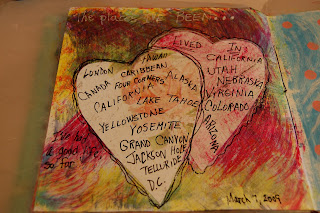 The places I've BEEN...
HAWAII
LONDON CARIBBEAN
CANADA FOUR CORNERS ALASKA
CALIFORNIA
LAKE TAHOE
YELLOWSTONE
YOSEMITE
GRAND CANYON
JACKSON HOLE
TELLURIDE
D.C.
LIVED IN
CALIFORNIA
UTAH
NEBRASKA
VIRGINIA
COLORADO
ARIZONA
a good life
so far
March 7, 2009